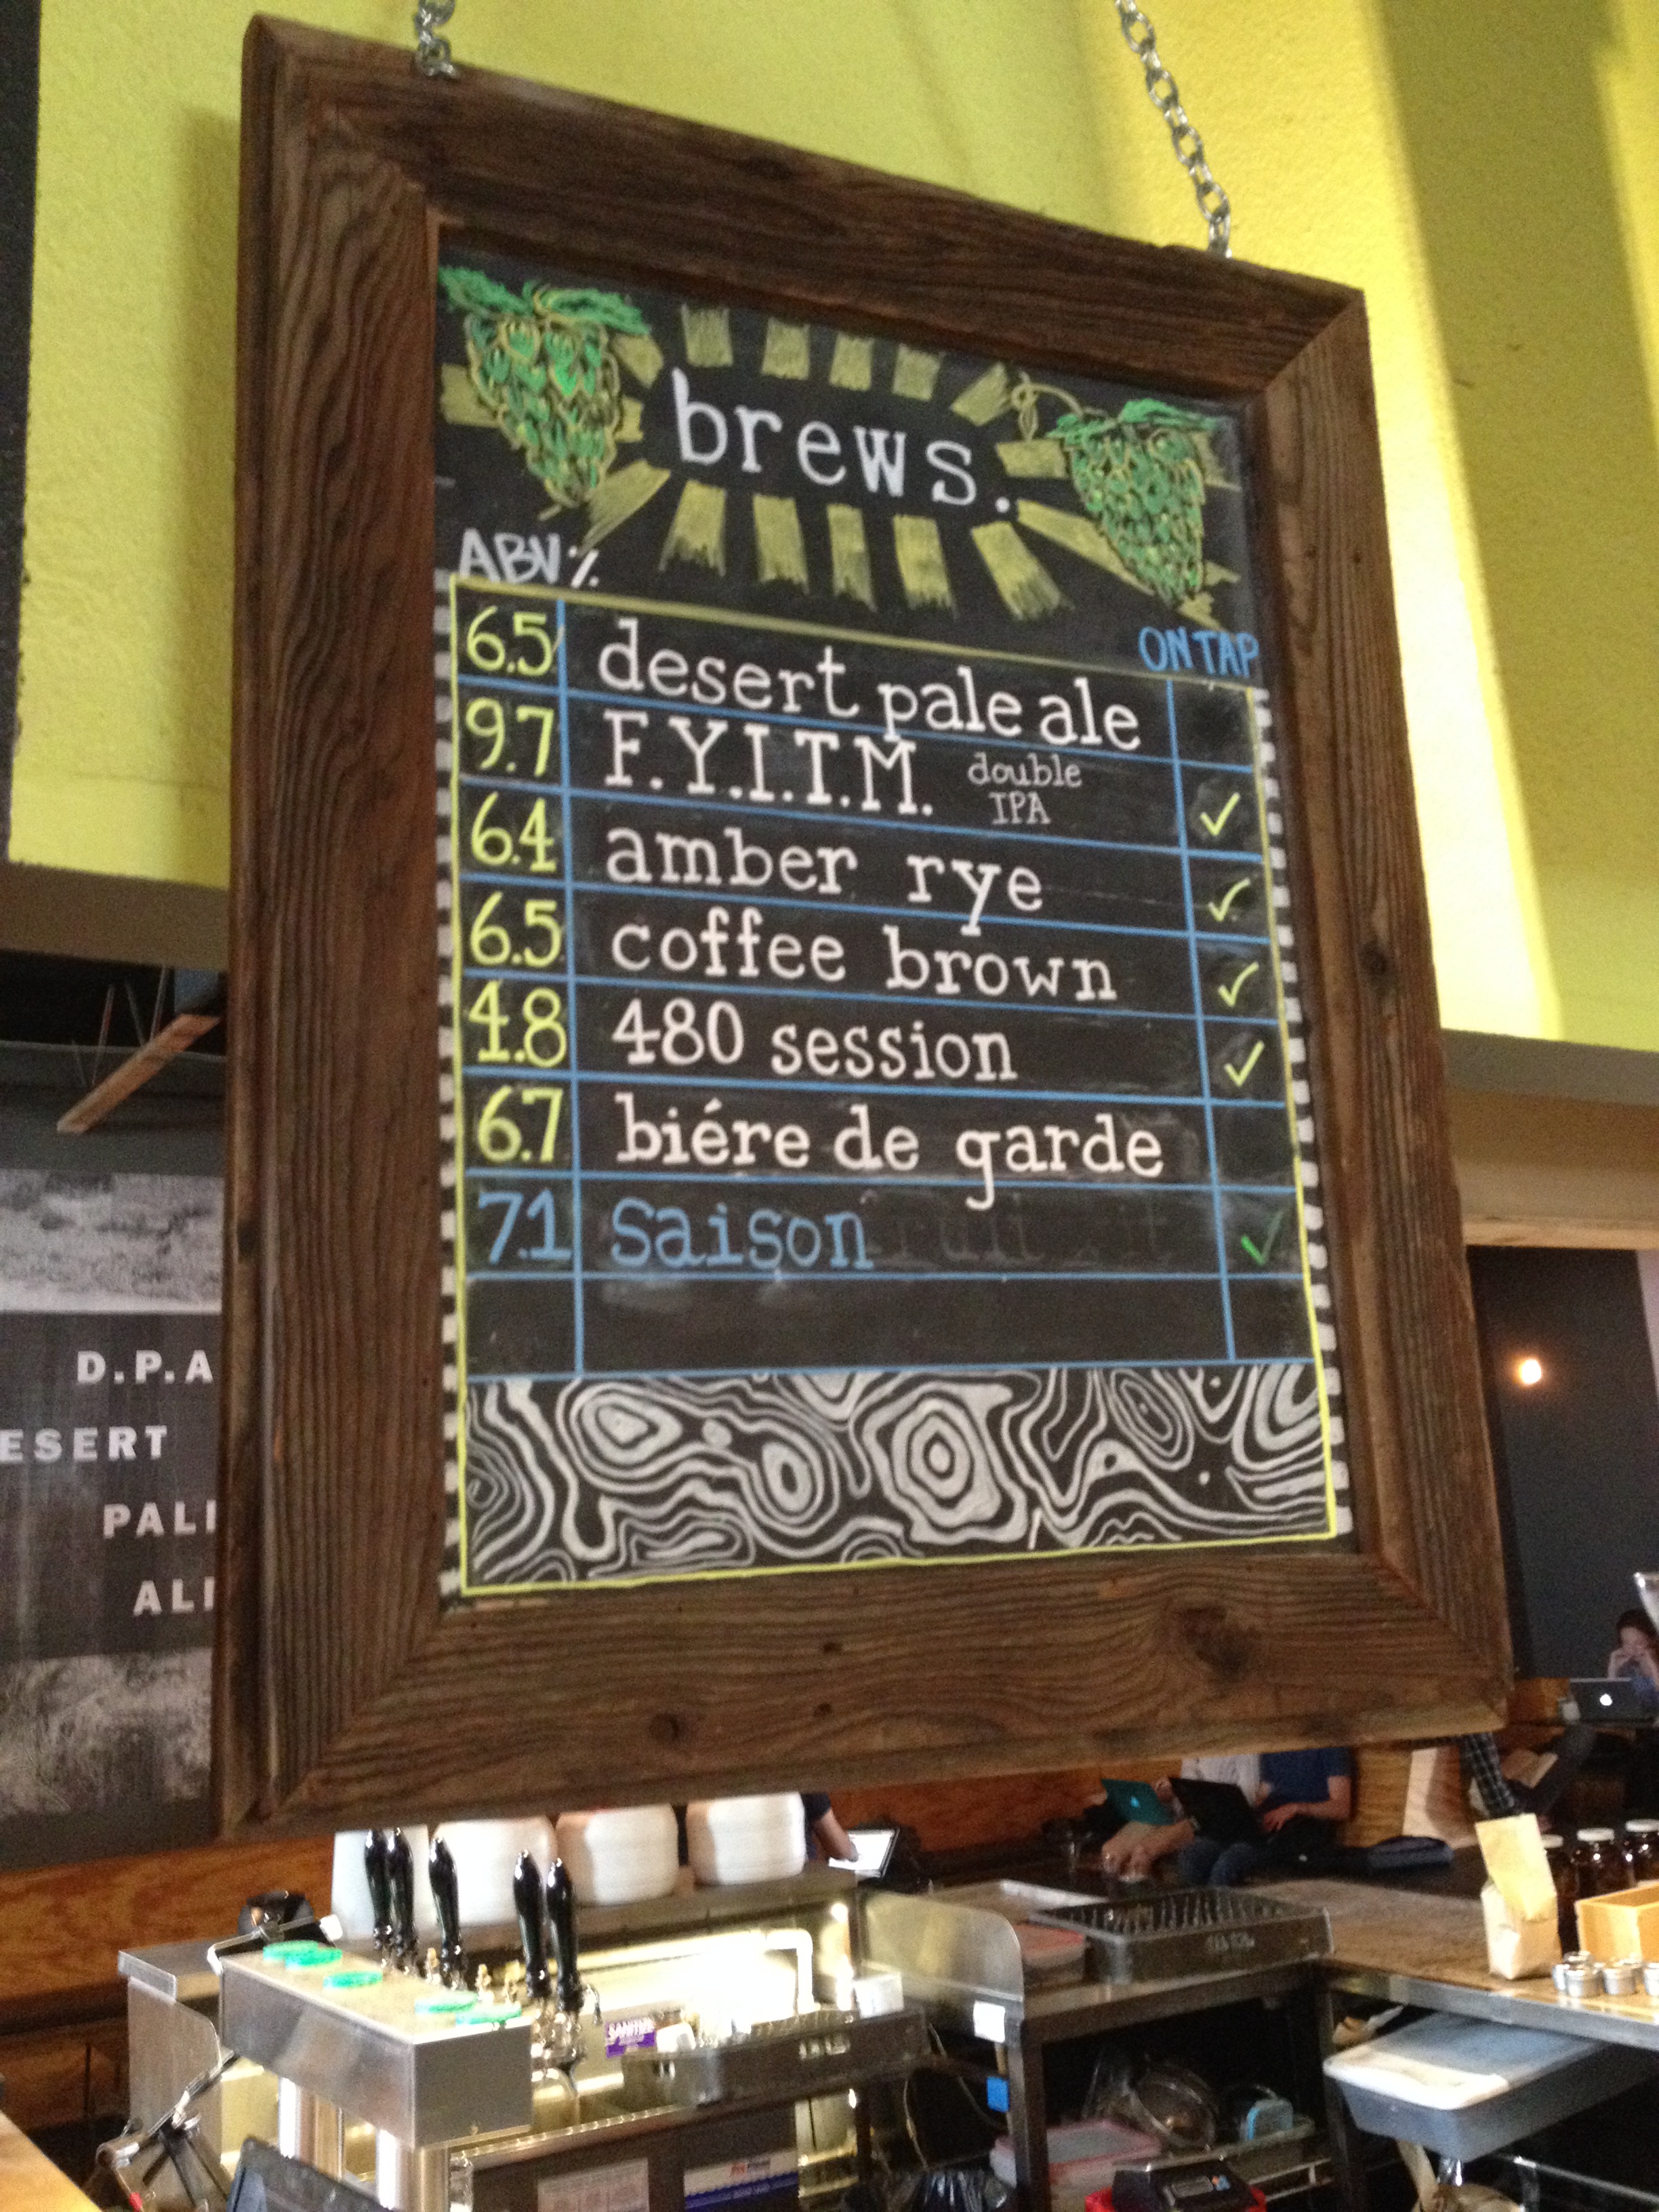 brews.
ABV%
ON TAP
6.5 desert pale ale
9.7 F.Y.I.T.M. double IPA ✓
6.4 amber rye ✓
6.5 coffee brown ✓
4.8 480 session ✓
6.7 biére de garde
7.1 saison ✓
D.P.A
ESERT
PAL
AL